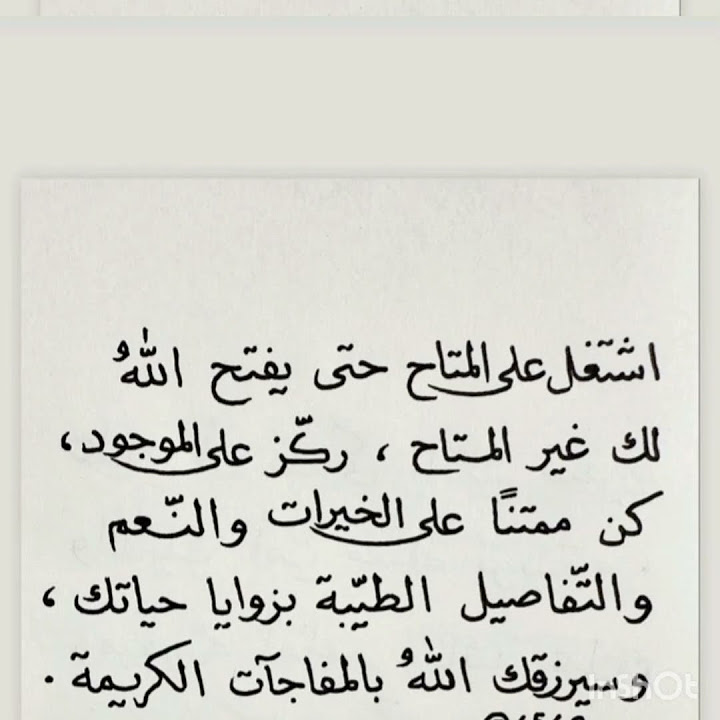 اشتغل على المتاح حتى يفتح اللهُ
لك غير المتاح ، ركّز على الموجود ،
كن ممتنًا على الخيرات والنّعم
والتّفاصيل الطيّبة بزوايا حياتك ،
وسيرزقك اللهُ بالمفاجآت الكريمة .
InShOt